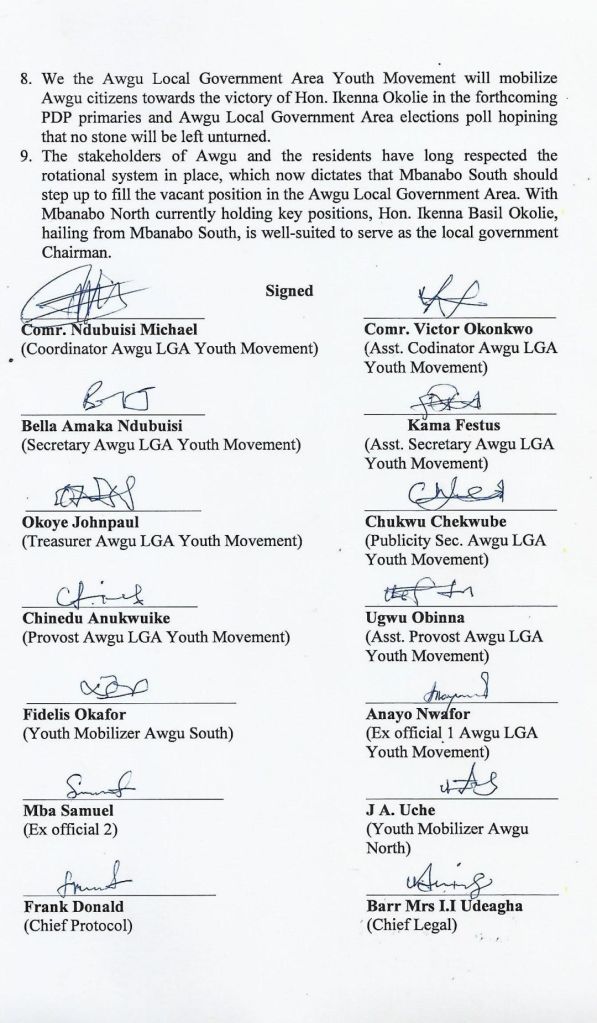 8. We the Awgu Local Government Area Youth Movement will mobilize
Awgu citizens towards the victory of Hon. Ikenna Okolie in the forthcoming
PDP primaries and Awgu Local Government Area elections poll hopining
that no stone will be left unturned.
9. The stakeholders of Awgu and the residents have long respected the
rotational system in place, which now dictates that Mbanabo South should
step up to fill the vacant position in the Awgu Local Government Area. With
Mbanabo North currently holding key positions, Hon. Ikenna Basil Okolie,
hailing from Mbanabo South, is well-suited to serve as the local government
Chairman.
Signed
Comr. Ndubuisi Michael
(Coordinator Awgu LGA Youth Movement)
Comr. Victor Okonkwo
(Asst. Codinator Awgu LGA
Youth Movement)
Bella Amaka Ndubuisi
(Secretary Awgu LGA Youth Movement)
Kama Festus
(Asst. Secretary Awgu LGA
Youth Movement)
Okoye Johnpaul
(Treasurer Awgu LGA Youth Movement)
Chukwu Chekwube
(Publicity Sec. Awgu LGA
Youth Movement)
Chinedu Anukwuike
(Provost Awgu LGA Youth Movement)
Ugwu Obinna
(Asst. Provost Awgu LGA
Youth Movement)
Fidelis Okafor
(Youth Mobilizer Awgu South)
Anayo Nwafor
(Ex official 1 Awgu LGA
Youth Movement)
Mba Samuel
(Ex official 2)
J A. Uche
(Youth Mobilizer Awgu
North)
Frank Donald
(Chief Protocol)
Barr Mrs I.I Udeagha
(Chief Legal)